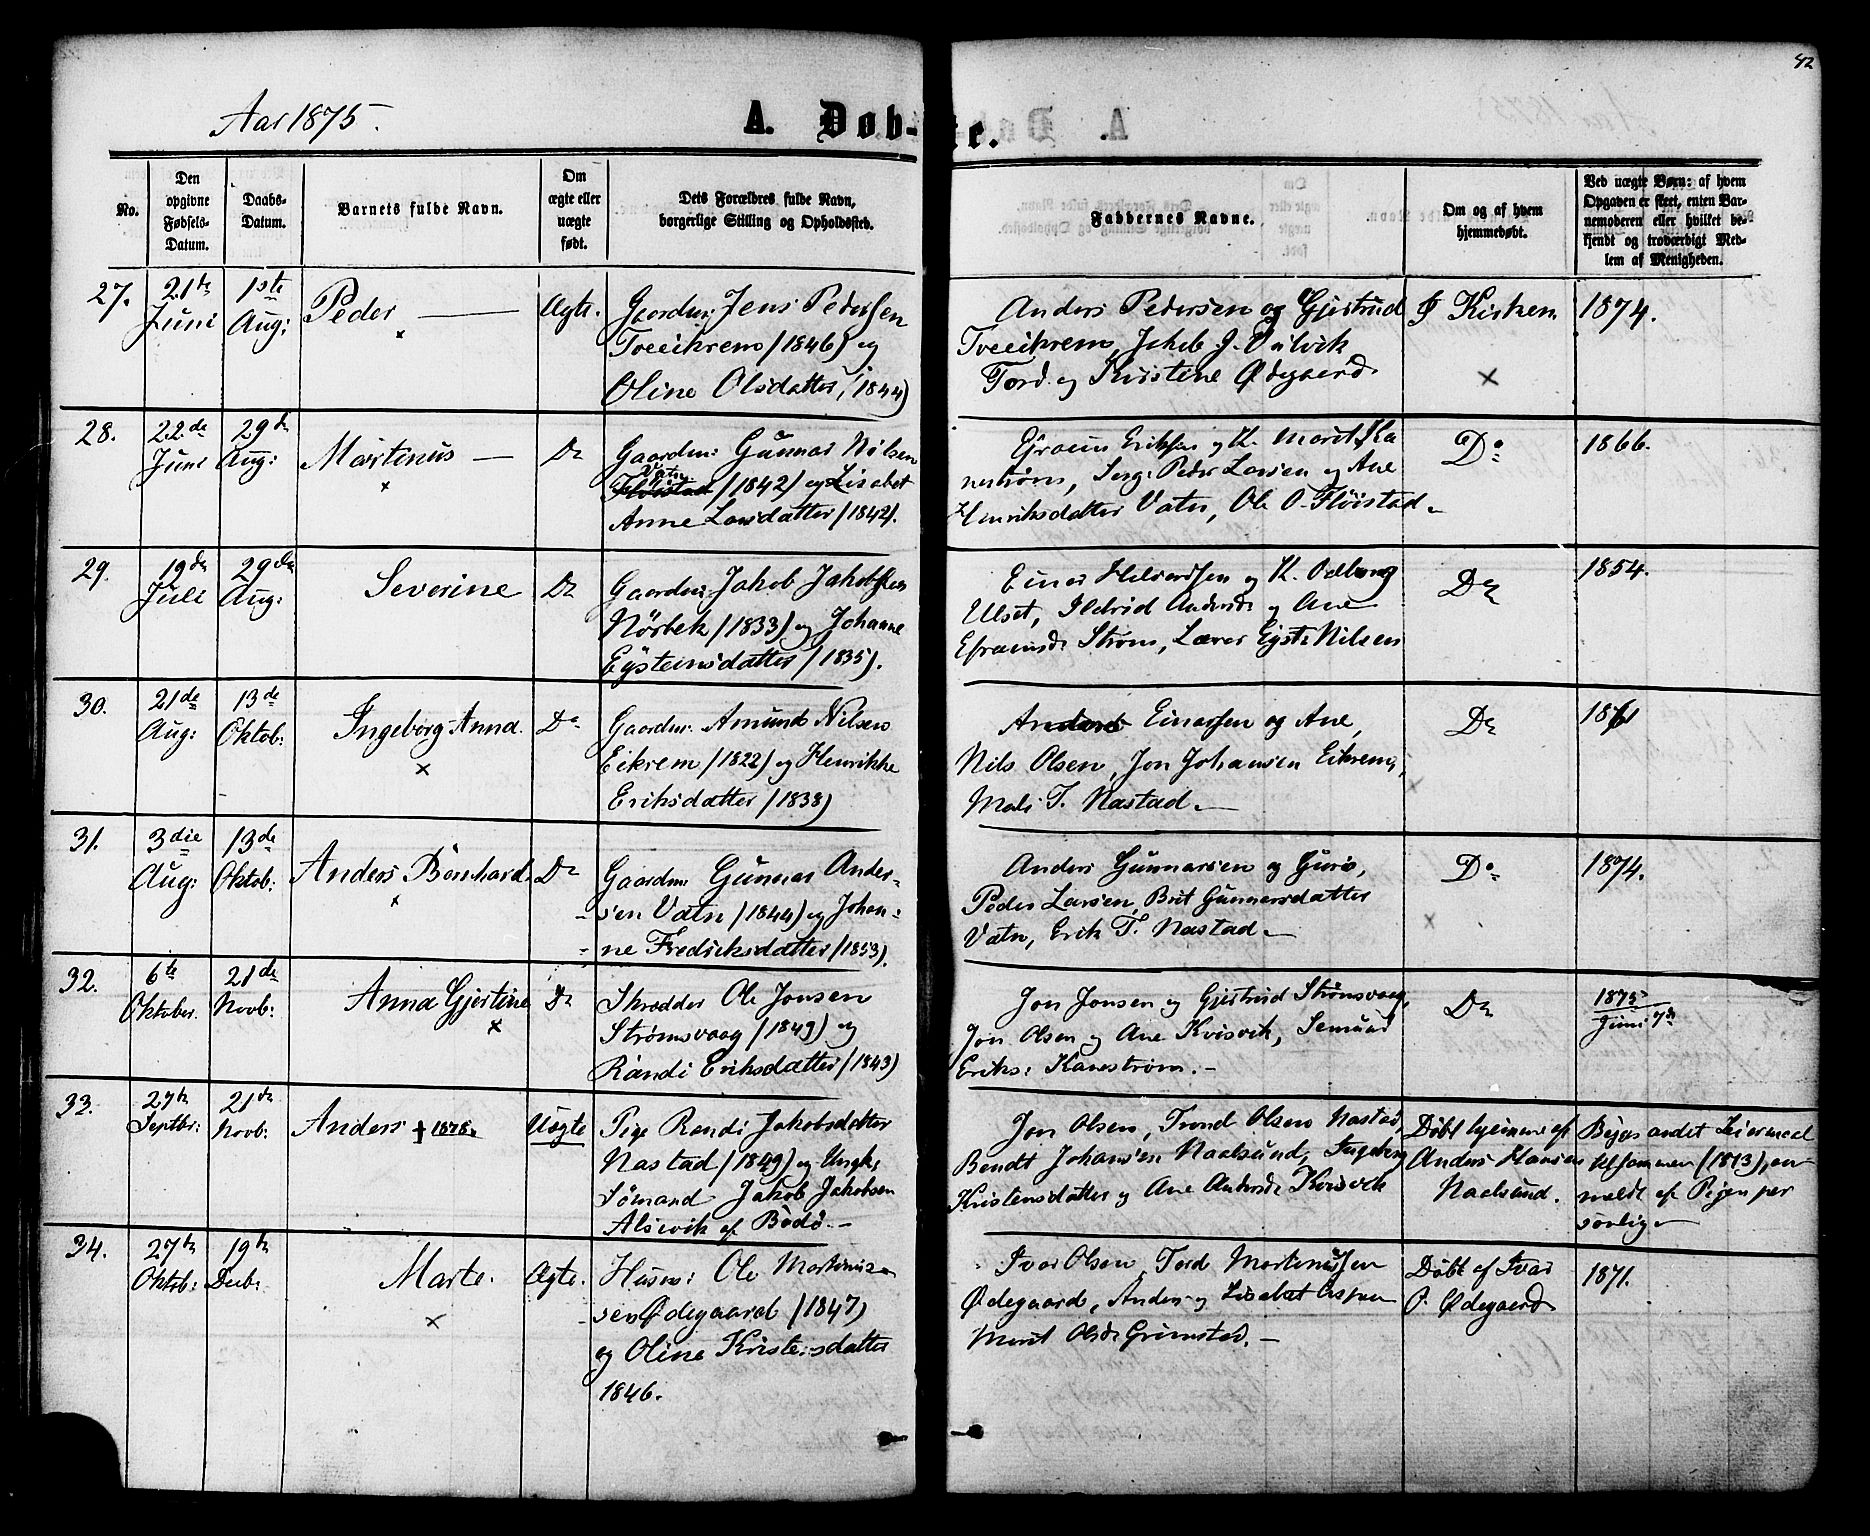 42
Aar 1875.
A. Døb-te.
No.
Den opgivne Fødsels-Datum.
Daabs-Datum.
Barnets fulde Navn.
Om ægte eller uægte født.
Dets Forældres fulde Navn, borgerlige Stilling og Opholdssted.
Faddernes Navne.
Om og af hvem hjemmedøbt.
Ved uægte Børn: af hvem Opgaven er skeet, enten Barnemoderen eller hvilket bekjendt og troværdigt Medlem af Menigheden.
27. 21de Juni 1ste Aug: Peder Ægte.
Gaardm: Jens Pedersen
Tveeikrem (1846) og
Oline Olsdatter, (1844)
Anders Pedersen og Gjertrud
Tveeikrem, Jakob J.
Tord og Kristine Ødegaard
I Kirken 1874.
28. 22de Juni 29de Aug: Martinus Do
Gaardm: Gunnar Nilsen
Vatn
Fløistad (1842) og Lisabet
Anne Larsdatter (1842).
Efraim Eriksen og K. Marit Ka
nestrøm, Serg: Peder Larsen og Ane
Henriksdatter Vatn, Ole O. Fløistad
Do 1866.
29. 19de Juli 29de Aug: Severine Do
Gaardm: Jakob Jakobsen
Nörbek (1833) og Johanne
Eysteinsdatter (1835).
Einar Halvorsen og K. Odbørg
Ulset, Ildrid Andersd: og Ane
Efraimsd: Strøm, Lærer Eyst: Nilsen
Do 1854.
30. 21de Aug: 13de Oktob: Ingeborg Anna Do
Gaardm: Amund Nilsen
Eikrem (1822) og Henrikke
Eriksdatter (1838)
Anders Einarsen og Ane,
Nils Olsen, Jon Johansen Eikrem,
Mali T. Nastad
Do 1861
31. 3die Aug: 13de Oktob: Anders Bernhard Do
Gaardm: Gunnar Ander-
sen Vatn (1844) og Johan-
ne Fredriksdatter (1853).
Anders Gunnarsen og Guro,
Peder Larsen, Brit Gunnarsdatter
Vatn, Erik T. Nastad
Do 1874.
32. 6te Oktober. 21de Novb: Anna Gjertine Do
Skrædder Ole Jonsen
Strømsvaag (1849) og
Randi Eriksdatter (1843)
Jon Jonsen og Gjertrud Strømsvaag,
Jon Olsen og Ane Kvisvik, Semund
Eriks: Kanestrøm.
Do 1875 Juni 7de
33. 27de Septbr: 21de Novb: Anders † 1878. Uægte
Pige Randi Jakobsdatter
Nastad (1849) og Ungk:
Sømand Jakob Jakobsen
Alsvik af Bodø.
Jon Olsen, Trond Olsen Nastad,
Bendt Johansen Naalsund, Ingeborg
Kristensdatter og Ane Andersd: Kvisvik
Døbt hjemme af
Anders Hansen
Naalsund.
Begges andet Leiermaal
tilsammen (1873), an-
meldt af Pigen per
sonlig
34. 27de Oktob: 19de Decb: Marte. Ægte.
Husm: Ole Martinus-
sen Ødegaard (1847)
og Oline Kristensdatter
1846.
Ivar Olsen, Tord Martinussen
Ødegaard, Anders og Lisabet Aspaa
Marit Olsd: Grimstad.
Døbt af Ivar
O. Ødegaard
1871.